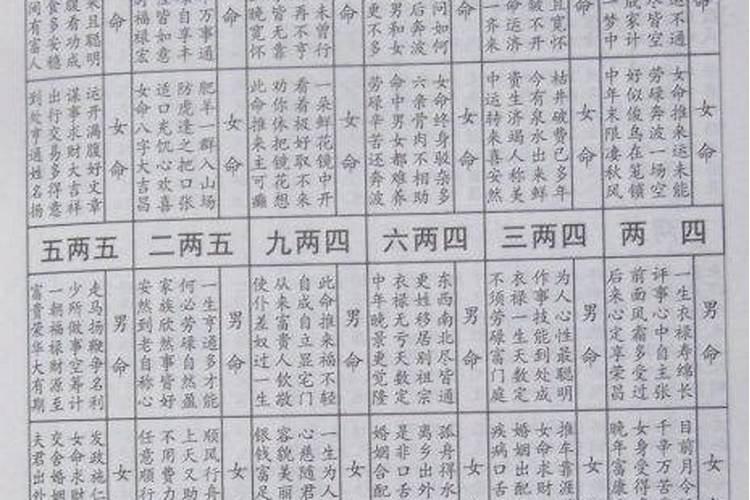 女命推来运未能
劳碌奔波一场空
好似俊鸟在笼锁
中年末限凄秋风
女命
枯井破费已多年
今有泉水出来鲜
资生济渴人称美
中运赫来喜安然
女命
女命终身驳杂多
六亲骨肉不相助
命中男女都难养
劳碌辛苦还奔波
女命
一朵鲜花镜中开
看看极好取不来
劝你休把镜花想
此命推来主可癫
女命
肥羊一群入山场
防虎逢之把口张
适口充饥心欢喜
女命八字大吉昌
女命
运开满腹好文章
谋事求财大吉祥
出行交易多得意
到处享通姓名扬
四两
四两三
四两六
四两九
五两二
五两五
一生衣禄寿绵长
评事心中自主张
前面风霜多受过
后来心定享荣昌
男命
为人心性最聪明
作事技能到处成
衣禄一生天数定
不须劳碌富门庭
男命
东西南北尽皆通
更姓移居别祖宗
衣禄无亏天数定
中年晚景更觉隆
男命
此命推来福不轻
自成自立显宅门
从来富贵人钦敬
使仆差奴过一生
男命
一生亨通多才能
何必劳碌自然盈
家族欣然事皆好
安然到老自称心
男命
走马扬鞭争名利
少所做事空筹计
一朝福禄财源至
富贵荣华大有期
目前月令
千辛万苦
女身受得
晚年富康
女
推车靠涯
女命求财
婚姻出配
疾病口舌
女
孤舟得水
离乡出外
是非口舌
婚姻合配
女
一生为人
心慈随君
容貌美丽
银钱富足
女
顺风行舟
上天又助
不用费力
任意顺行
女
发政施仁
女命求财
交舍婚姻
夫君出外